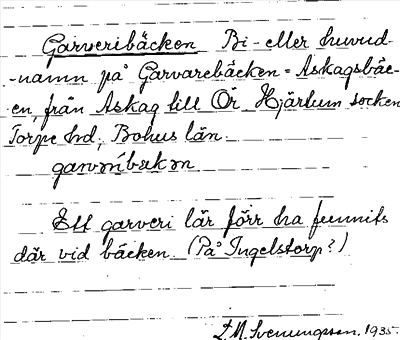 Garveribäcken Bi- eller huvud-
-namn på Garvarebäcken = Askagsbäc-
en, från Askag till Ör Hjärtum socken
Torpe hd, Bohus län.
Ett garveri lär förr ha funnits
där vid bäcken. (På Ingelstorp?)
L.M. Svenungsson. 1935.